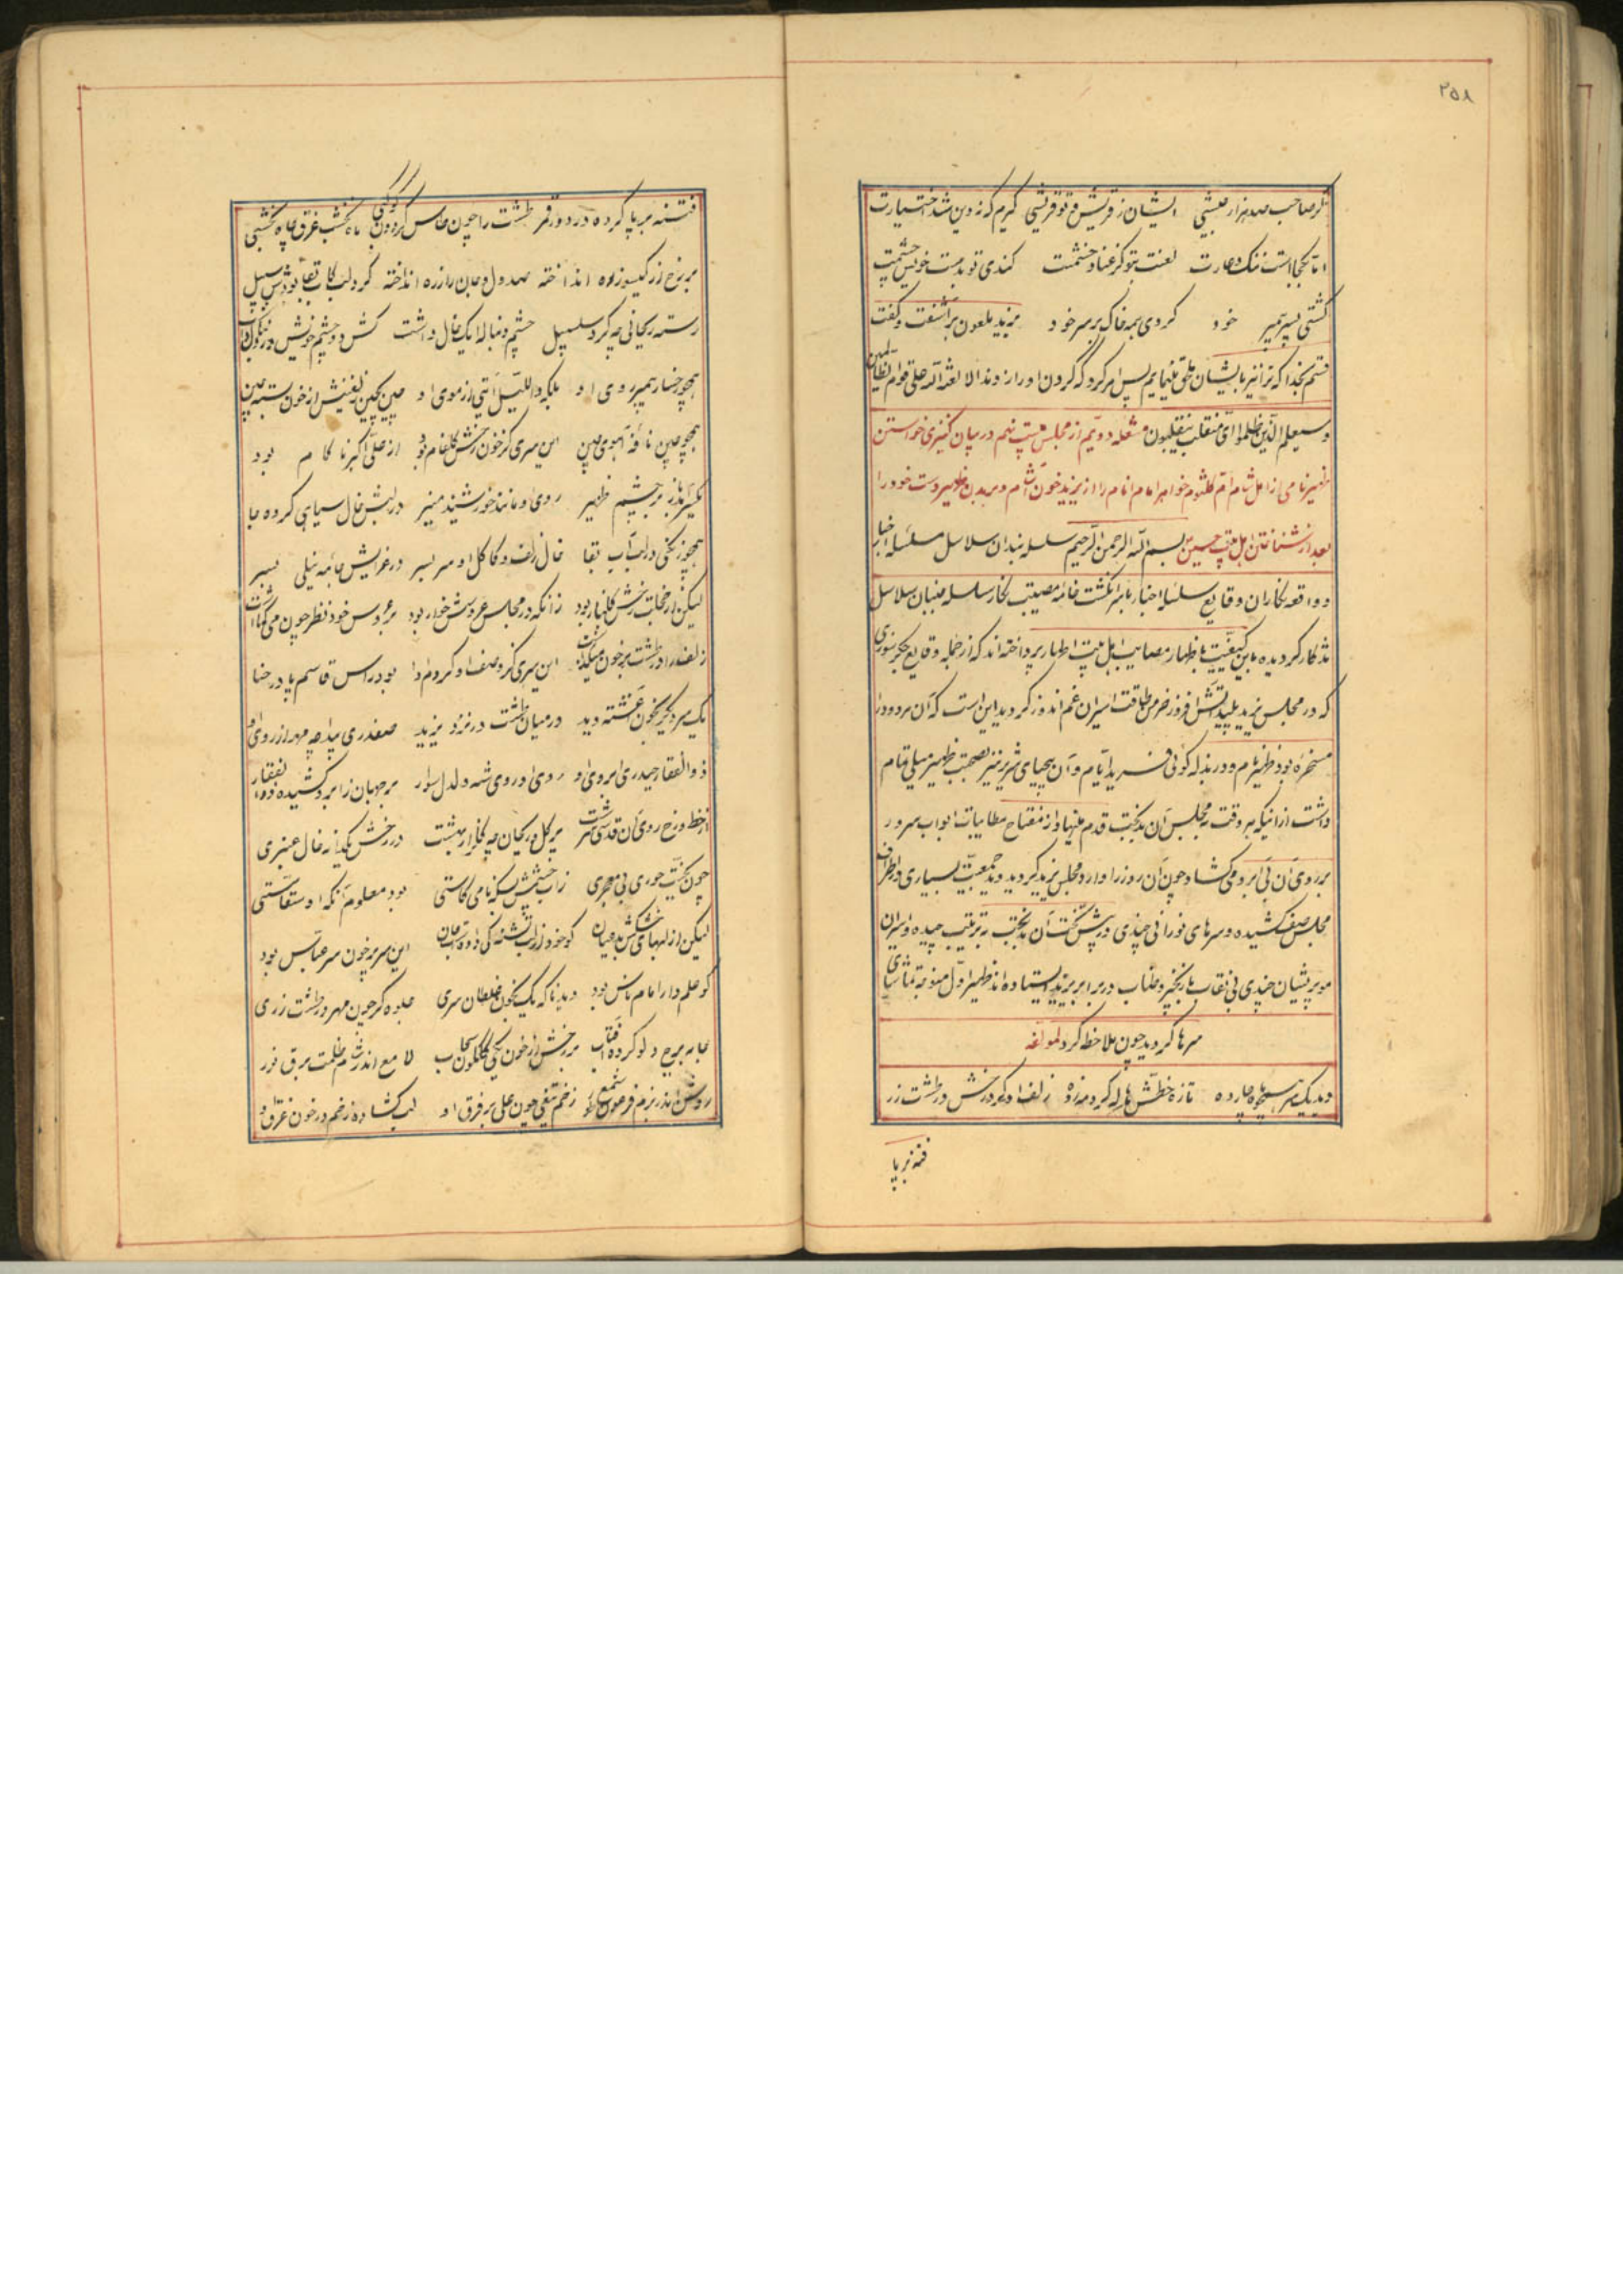 ۲۵۸
گر صاحب صد هزار عیشی ایشان ز قریش و تو قریشی گیرم که ز دین شد اختیارت
اما بکجا است ننک و عارت لعنت بتو کز عناد و خشمت کندی تو بدست خویش چشمت
کشتی پسر پیمبر خود کردی همه خاک بر سر خود یزید ملعون برآشفت و گفت
قسم بخدا که ترا نیز بایشان ملحق مینمایم پس امر کرد که گردن او را زدند الا لعنة الله علی قوم الظالمین
وسیعلم الذین ظلموا ای منقلب ینقلبون مشعله دویم از مجلس بیست نهم در بیان کنیزی خواستن
ظهیر نامی از اهل شام ام کلثوم خواهر امام انام را از یزید خون آشام و بریدن ظهیر دست خود را
بعد از شناختن اهل بیت حسین بسم الله الرحمن الرحیم سلسله بندان سلاسل سلسله اخبار
و واقعه نگاران وقایع سلسله اخبار با سر انکشت خامه مصیبت نگار سلسله جنبان سلاسل
تذکار گردیده باین کیفیت باظهار مصایب اهل بیت اطهار پرداخته اند که از جمله وقایع جگر سوزی
که در مجلس یزید پلید آتش افروز خرمن طاقت اسیران غم اندوز گردید این است که آن مردود را
مسخره بود ظهیر نام و در بذله گوئی فرید ایام و آن بیحیای شریر نیز بصحبت ظهیر میلی تمام
داشت از انیکه هر وقت به مجلس آن بدبخت قدم مینهاد از مفتاح مطایبات ابواب سرور
بر روی آن بی آبرو می گشاد چون آن روز را وارد مجلس یزید گردید دید جمعیت بسیاری در اطراف
مجلس صف کشیده و سرهای نورانی چندی در پیش تخت آن بدبخت به ترتیب چیده و اسیران
مو پریشان چندی بی نقاب با زنجیر و طناب در برابر یزید ایستاده اند ظهیر اول متوجه تماشای
سرها گردید چون ملاحظه کرد لمؤلفه
دید یک سر همچو ماه چارده تازه خطش هاله کرد مه زده زلف او بر گرد رخش در طشت زر
فتنه بر پا
فتنه بر پا کرده در دور قمر طشت را چون طاس گردون کوکبی ماه نخشب غرق چاه نخشبی
بر رخ از گیسو زره انداخته کرد لب
رسته ریحانی چه گرد سلسبیل چشم و دنباله یک خال داشت
همچو رخسار پیمبر روی او بلکه واللیل آیتی از موی او چین بچین زلفینش از خون بسته چین
همچو چین نافه آهوی چین این سری کز خون رخش گلفام بود از علی اکبر ناکام بود
روی او مانند خورشید منیر در لبش خال سیاهی کرده جا
همچو زنگی در لب آب بقا خال زلف و کاکل او سر بسر در عزایش جامه نیلی ببر
لیکن از خجلت رخش گلنار بود زانکه در مجلس عروسش خوار بود بر عروس خود نظر چون می گماشت
زلف را در طشت پر خون میگذاشت این سری کز وصف او کردم ادا بود راس قاسم پا در حنا
یک سر دیگر بخون آغشته دید در میان طشت در نزد یزید صفدری پیدا چه مهر از روی او
ذوالفقار حیدری ابروی او روی او روی شه دلدل سوار بر جهان ز ابرو کشیده ذوالفقار
از خط و رخ روی آن قدسی سرشت پر گل و ریحان چه گلزار بهشت در رخش یکدانه خال عنبری
بود معلوم آنکه او سقاستی
لیکن از لبهای خشکش بد عیان این سر پر خون سر عباس بود
کو علم دار امام ناس بود دید ناگه یک بخون غلطان سری جلوه گر چون مهر در طشت زری
جا به برج دلو کرده آفتاب بر رخش از خون یکی گلگون سحاب لامع اندر شام ظلمت برق نور
روشن اندر بزم فرعون شمع طور زخم تیغی چون علی بر فرق او لب گشاده زخم در خون غرق او